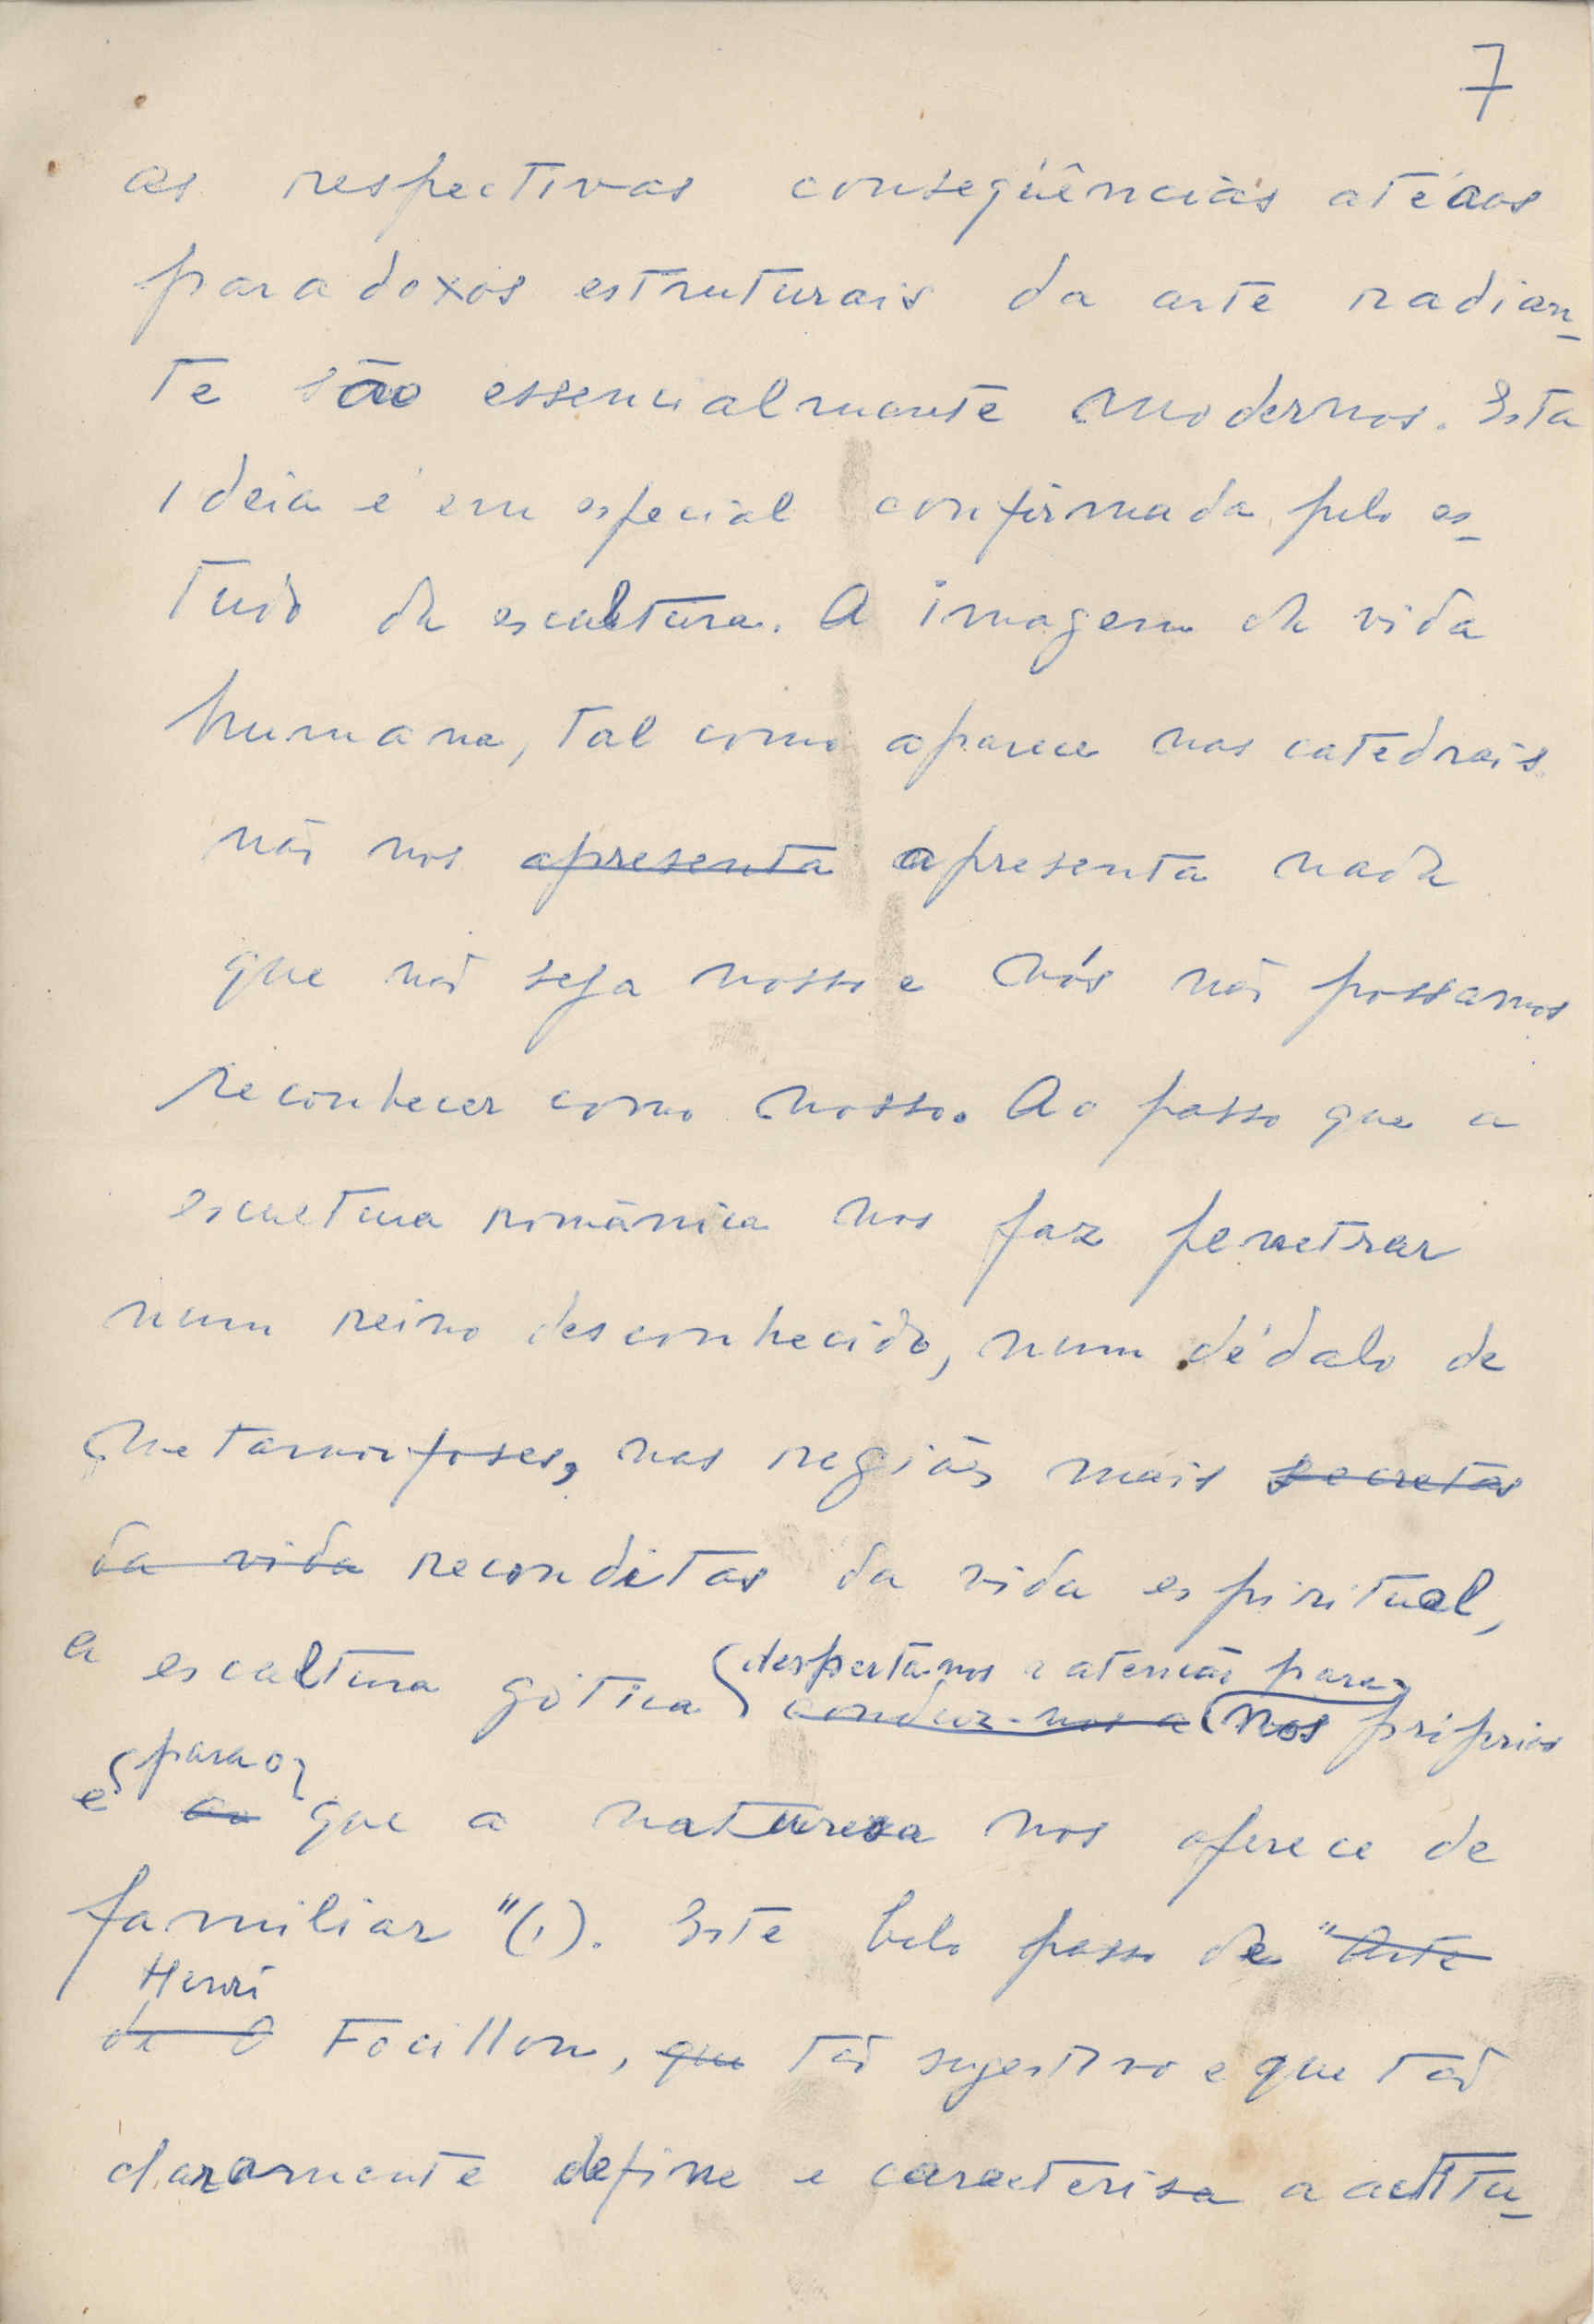 7
as respectivas conseqüências até aos
paradoxos estruturais da arte radian-
te são essencialmente modernos. Esta
ideia é em especial confirmada pelo es-
tudo da escultura. A imagem da vida
humana, tal como aparece nas catedrais
não nos apresenta apresenta nada
que não seja nosso e nós não possamos
reconhecer como nosso. Ao passo que a
escultura românica nos faz penetrar
num reino desconhecido, num dédalo de
metamorfoses, nas regiões mais secretas
da vida reconditas da vida espiritual,
despertá-nos a atenção para
a escultura gótica conduz-nos a nós próprios
para o
e ao que a naturesa nos oferece de
familiar "(1). Este belo passo de "Arte
Henri
de O Focillon, que tão sugestivo e que tão
claramente define e caracterisa a actitu-